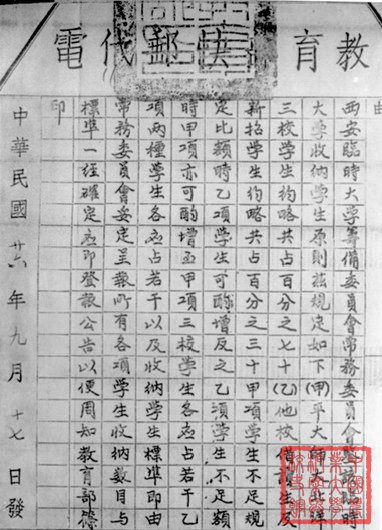 教育部快郵代電
西安臨時大學籌備委員會常務委員公鑒該臨時
大學收納學生原則茲規定如下(甲)平大師大北洋
三校學生約略共占百分之七十(乙)他校借讀生及
新招學生約略共占百分之三十甲項學生不足規
定比額時乙項學生可酌增反之乙項學生不足額
時甲項亦可酌增至甲項三校學生各應占若干乙
項兩種學生各應占若干以及收納學生標準即由
常務委員會妥定呈報所有各項學生收納數目與
標準一經確定應即登報公告以便周知教育部
印
中華民國廿六年九月十七日發